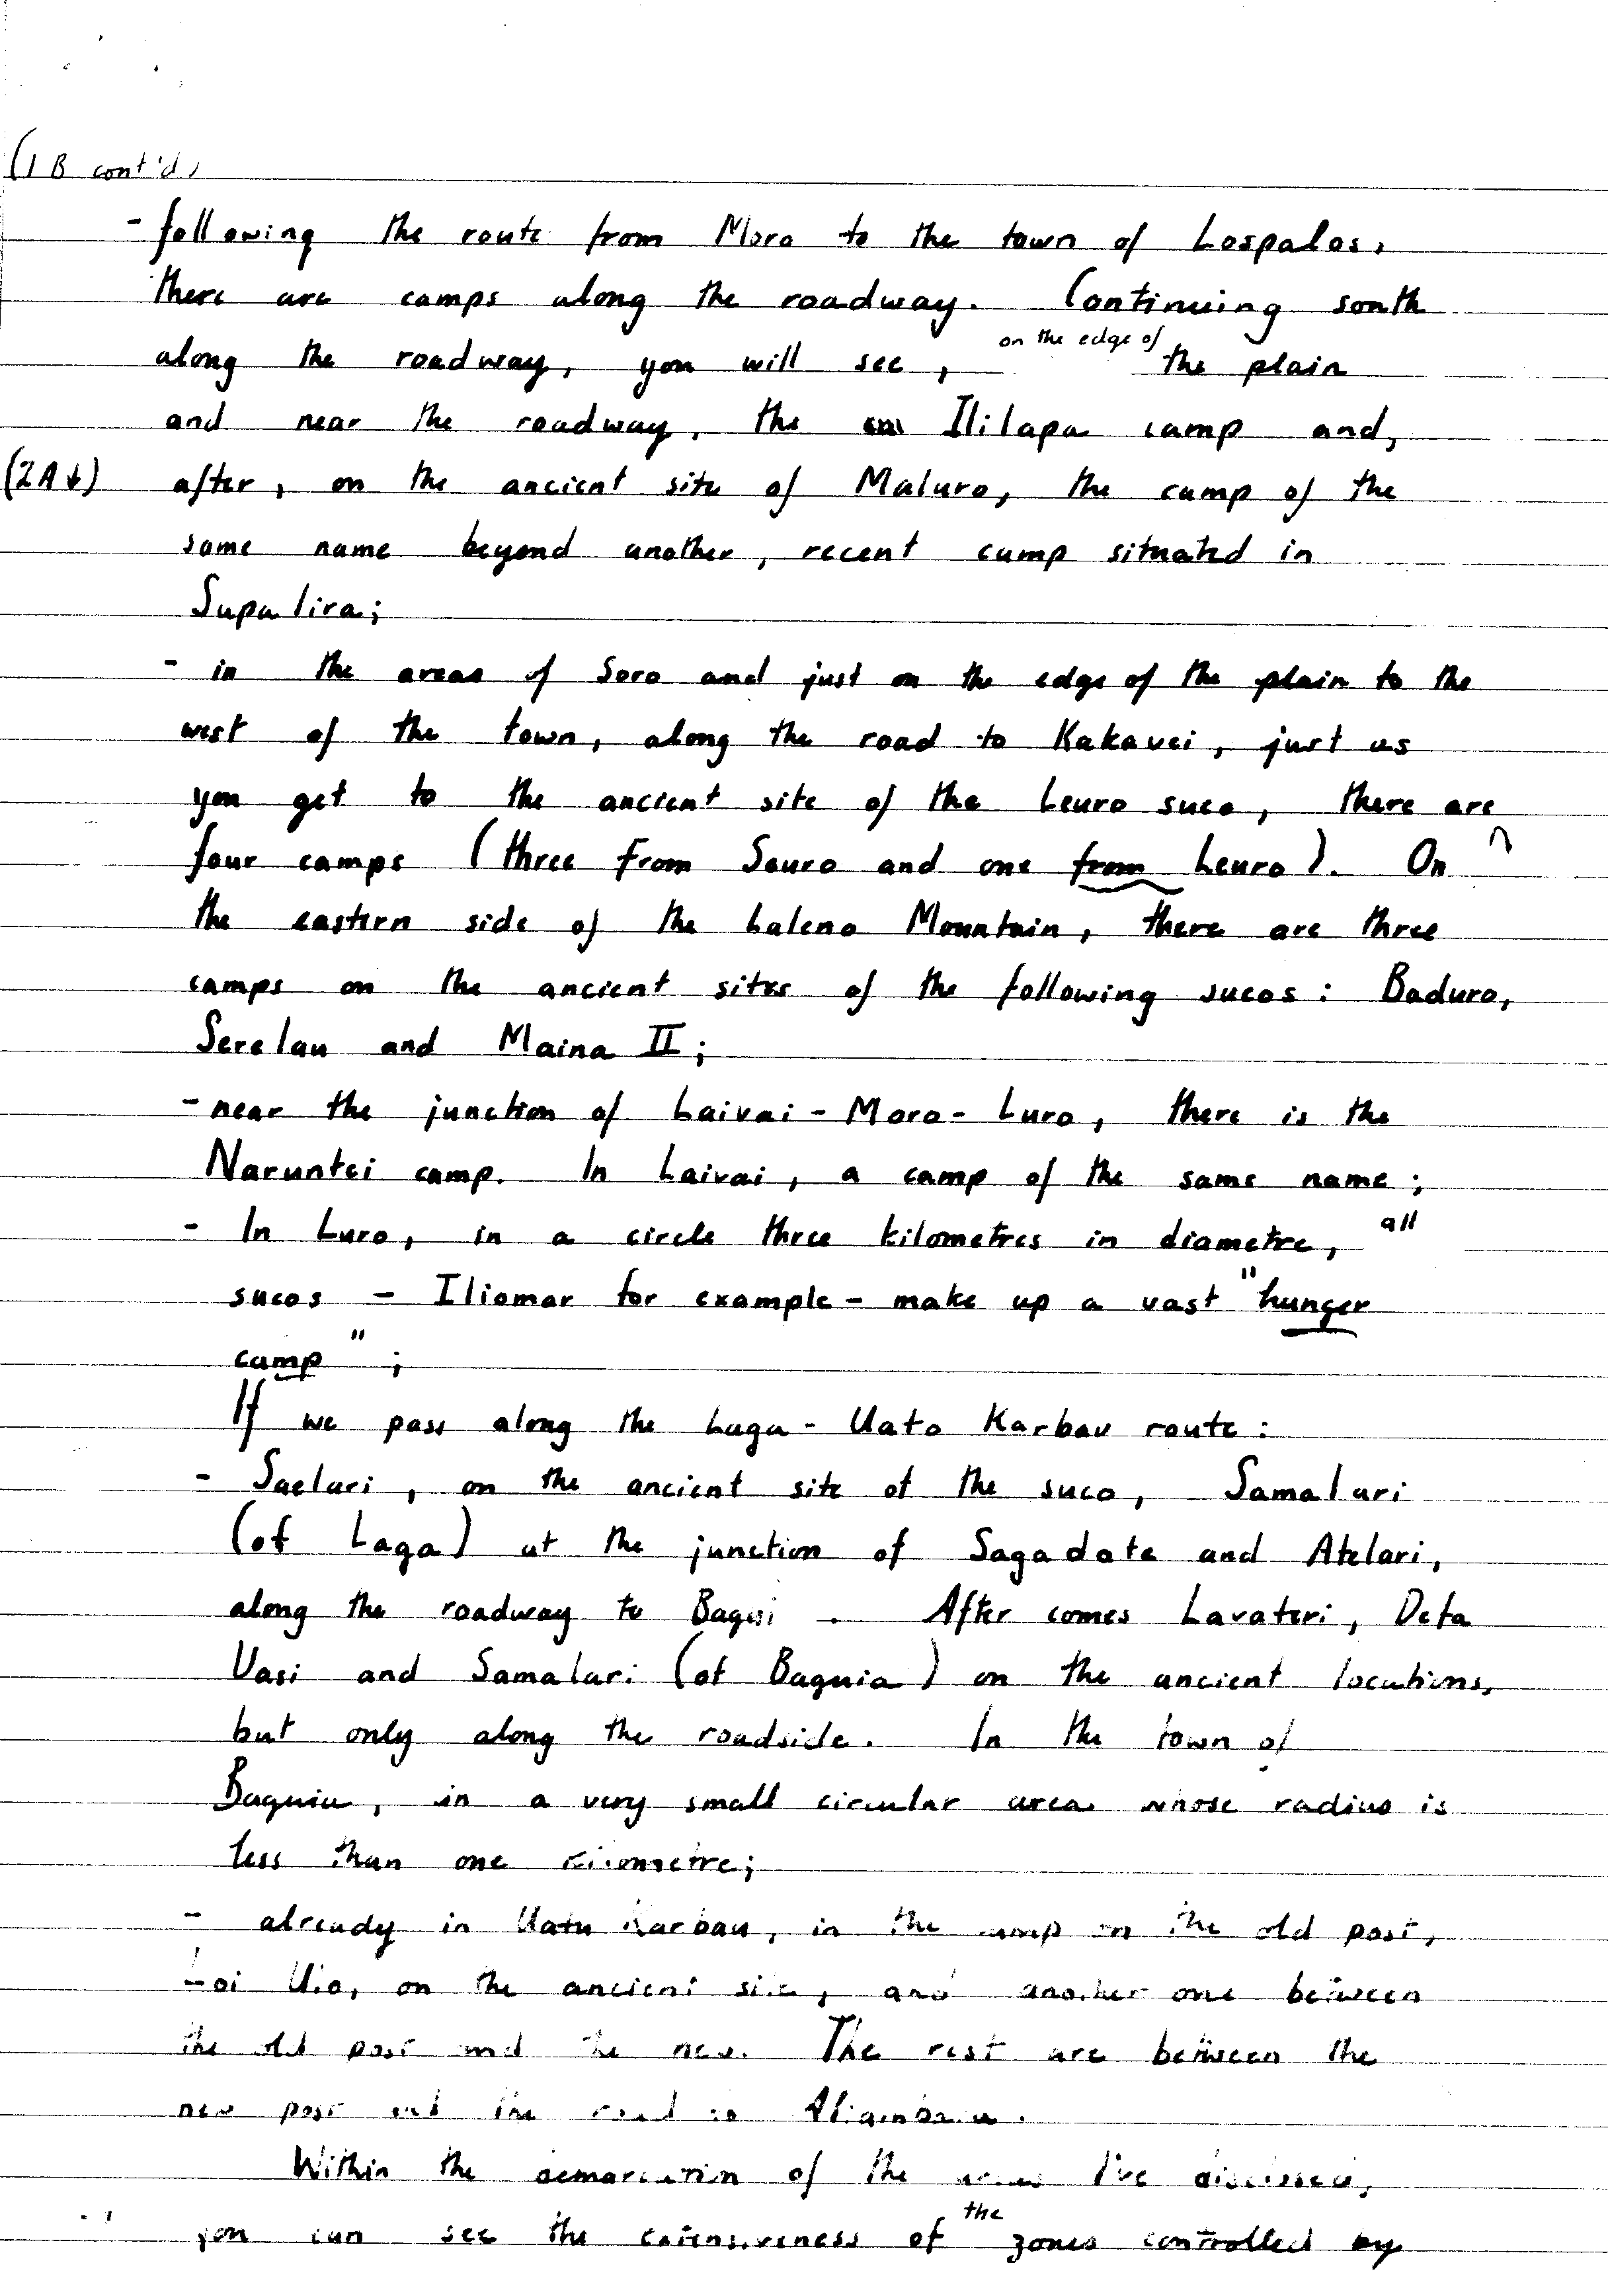 (1 B cont'd)
- following the route from Moro to the town of Lospalos,
there are camps along the roadway. Continuing south
along the roadway, you will see, on the edge of the plain
and near the roadway, the Ililapa camp and,
(2A↓) after, on the ancient site of Maluro, the camp of the
same name beyond another, recent camp situated in
Supalira;
- in the areas of Soro and just on the edge of the plain to the
west of the town, along the road to Kakavei, just as
you get to the ancient site of the Leuro suco, there are
four camps (three from Souro and one from Leuro). On
the eastern side of the Laleno Mountain, there are three
camps on the ancient sites of the following sucos: Baduro,
Serelau and Maina II;
- near the junction of Laivai - Moro - Luro, there is the
Naruntei camp. In Laivai, a camp of the same name;
- In Luro, in a circle three kilometres in diametre, all
sucos - Iliomar for example - make up a vast "hunger
camp";
If we pass along the Laga - Uato Karbau route:
- Saelari, on the ancient site of the suco, Samalari
(of Laga) at the junction of Sagadate and Atelari,
along the roadway to . After comes Lavateri, Defa
Uasi and Samalari (of Baguia) on the ancient locations,
but only along the roadside. In the town of
Baguia, in a very small circular area whose radius is
less than one kilometre;
- already in Uatu Karbau, in the camp on the old post,
Loi Uio, on the ancient site, and another one between
the old post and the new. The rest are between the
new post and the road to .
Within the demarcation of the areas I've discussed,
you can see the extensiveness of the zones controlled by